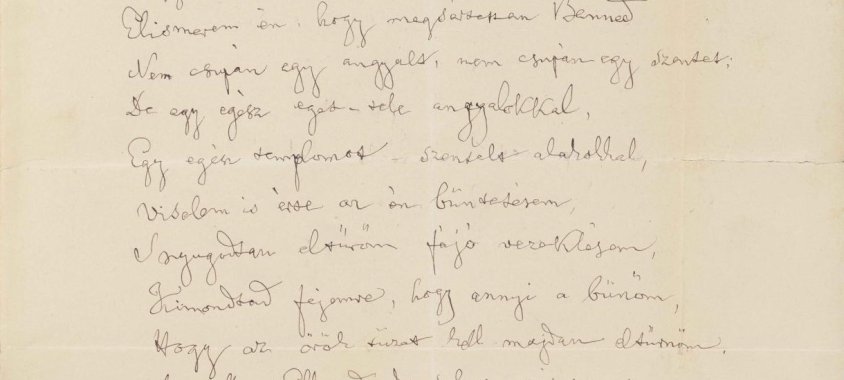 Elismerem én, hogy megsértettem Benned
Nem csupán egy angyalt, nem csupán egy szentet;
De egy egész eget – tele angyalokkal,
Egy egész templomot – szentelt alakokkal,
Viselem is érte az én büntetésem,
S nyugodtan eltűröm fájó vezeklésem,
Kimondtad fejemre, hogy annyi a bűnöm,
Hogy az örök tüzet kell majdan eltűrnöm.